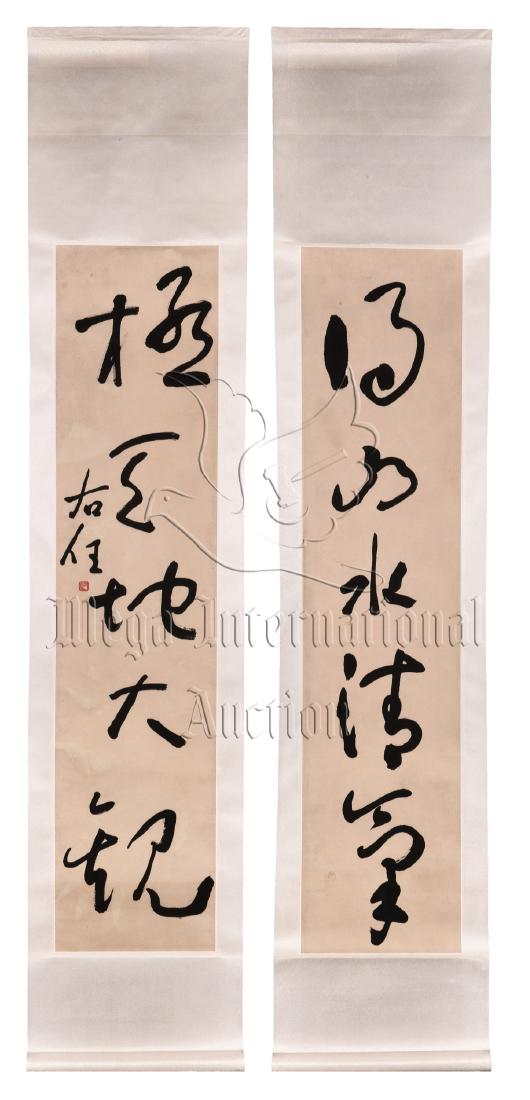 得山水清氣
極天地大觀
右任
Mega International
Auction